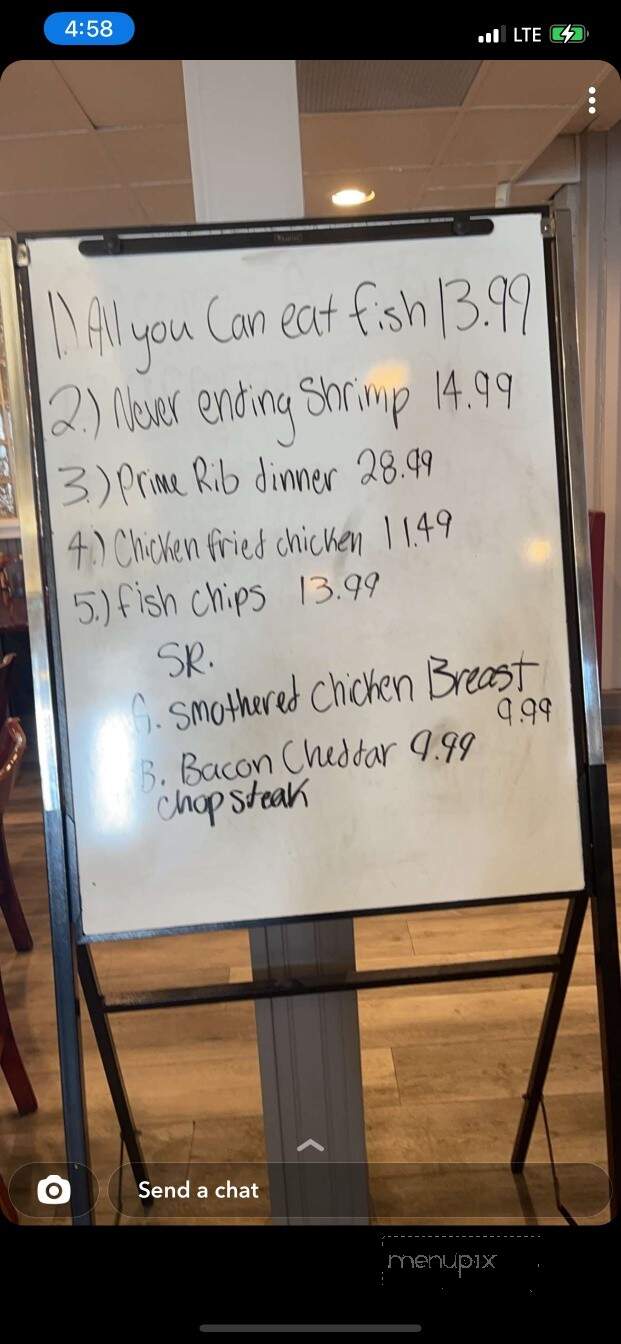 4:58
LTE
1.) All you Can eat fish 13.99
2.) Never ending Shrimp 14.99
3.) Prime Rib dinner 28.99
4.) Chicken fried chicken 11.49
5.) fish chips 13.99
SR.
smothered chicken Breast
9.99
B. Bacon Cheddar 9.99
chop steak
Send a chat
menupix